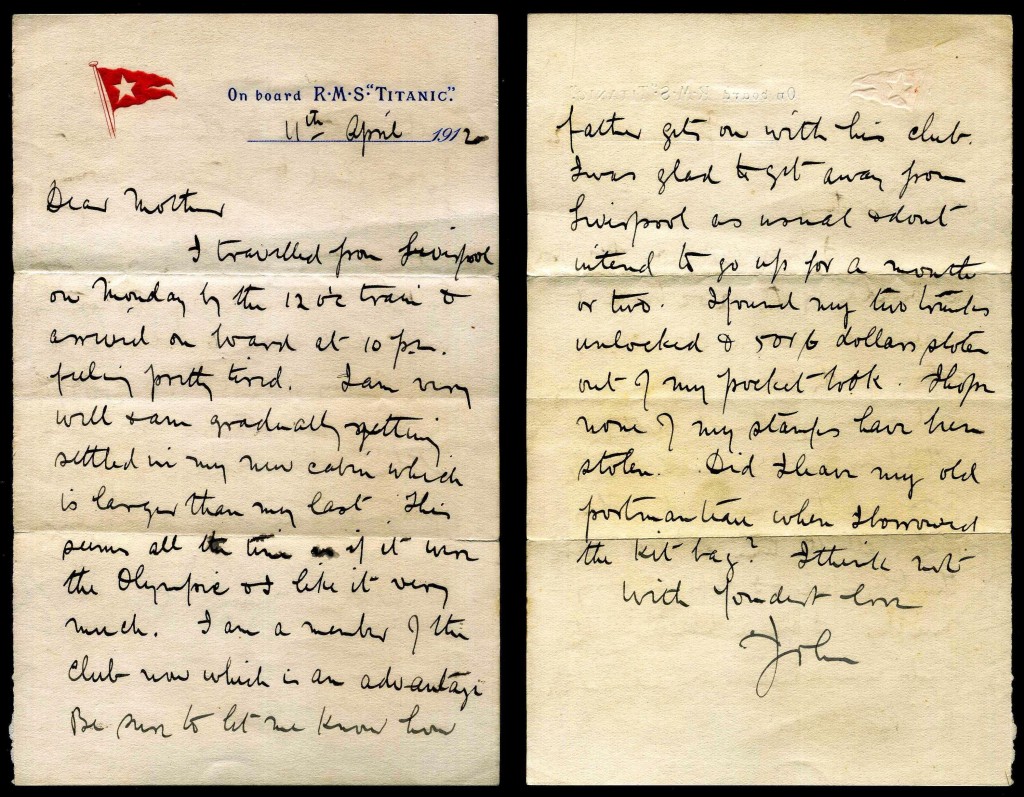 On board R·M·S·"TITANIC".
11th April 1912
Dear Mother
I travelled from Liverpool
on Monday by the 12 o'c train &
arrived on board at 10 pm.
feeling pretty tired. I am very
well & am gradually getting
settled in my new cabin which
is larger than my last. This
seems all the time as if it were
the Olympic & I like it very
much. I am a member of the
club now which is an advantage
Be sure to let me know how
father gets on with his club.
I was glad to get away from
Liverpool as usual & dont
intend to go up for a month
or two. I found my two trunks
unlocked & 5 or 6 dollars stolen
out of my pocket book. I hope
none of my stamps have been
stolen. Did I leave my old
portmanteau when I borrowed
the kit bag? I think not
with fondest love
John